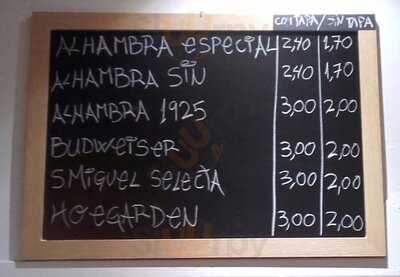 CON TAPA / SIN TAPA
ALHAMBRA ESPECIAL 2,40 1,70
ALHAMBRA SIN 2,40 1,70
ALHAMBRA 1925 3,00 2,00
BUDWEISER 3,00 2,00
SMIGUEL SELECTA 3,00 2,00
HOEGARDEN 3,00 2,00